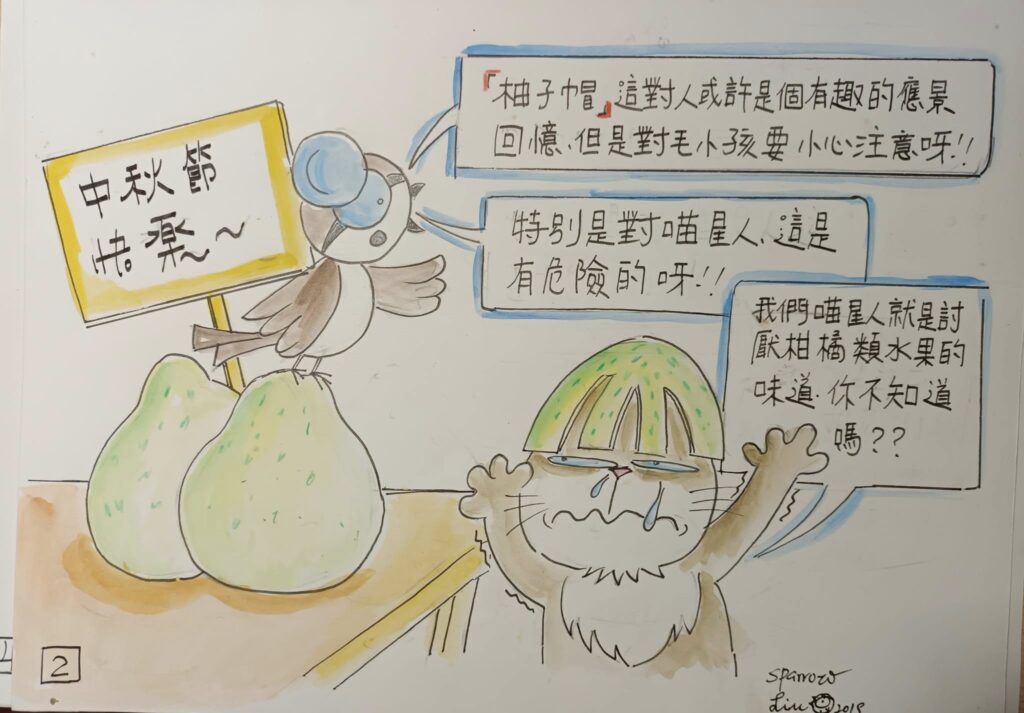 中秋節
快樂~~
「柚子帽」這對人或許是個有趣的應景
回憶、但是對毛小孩要小心注意呀!!
特別是對喵星人、這是
有危險的呀!!
我們喵星人就是討
厭柑橘類水果的
味道.你不知道
嗎??
2
sparrow
Liu 2019